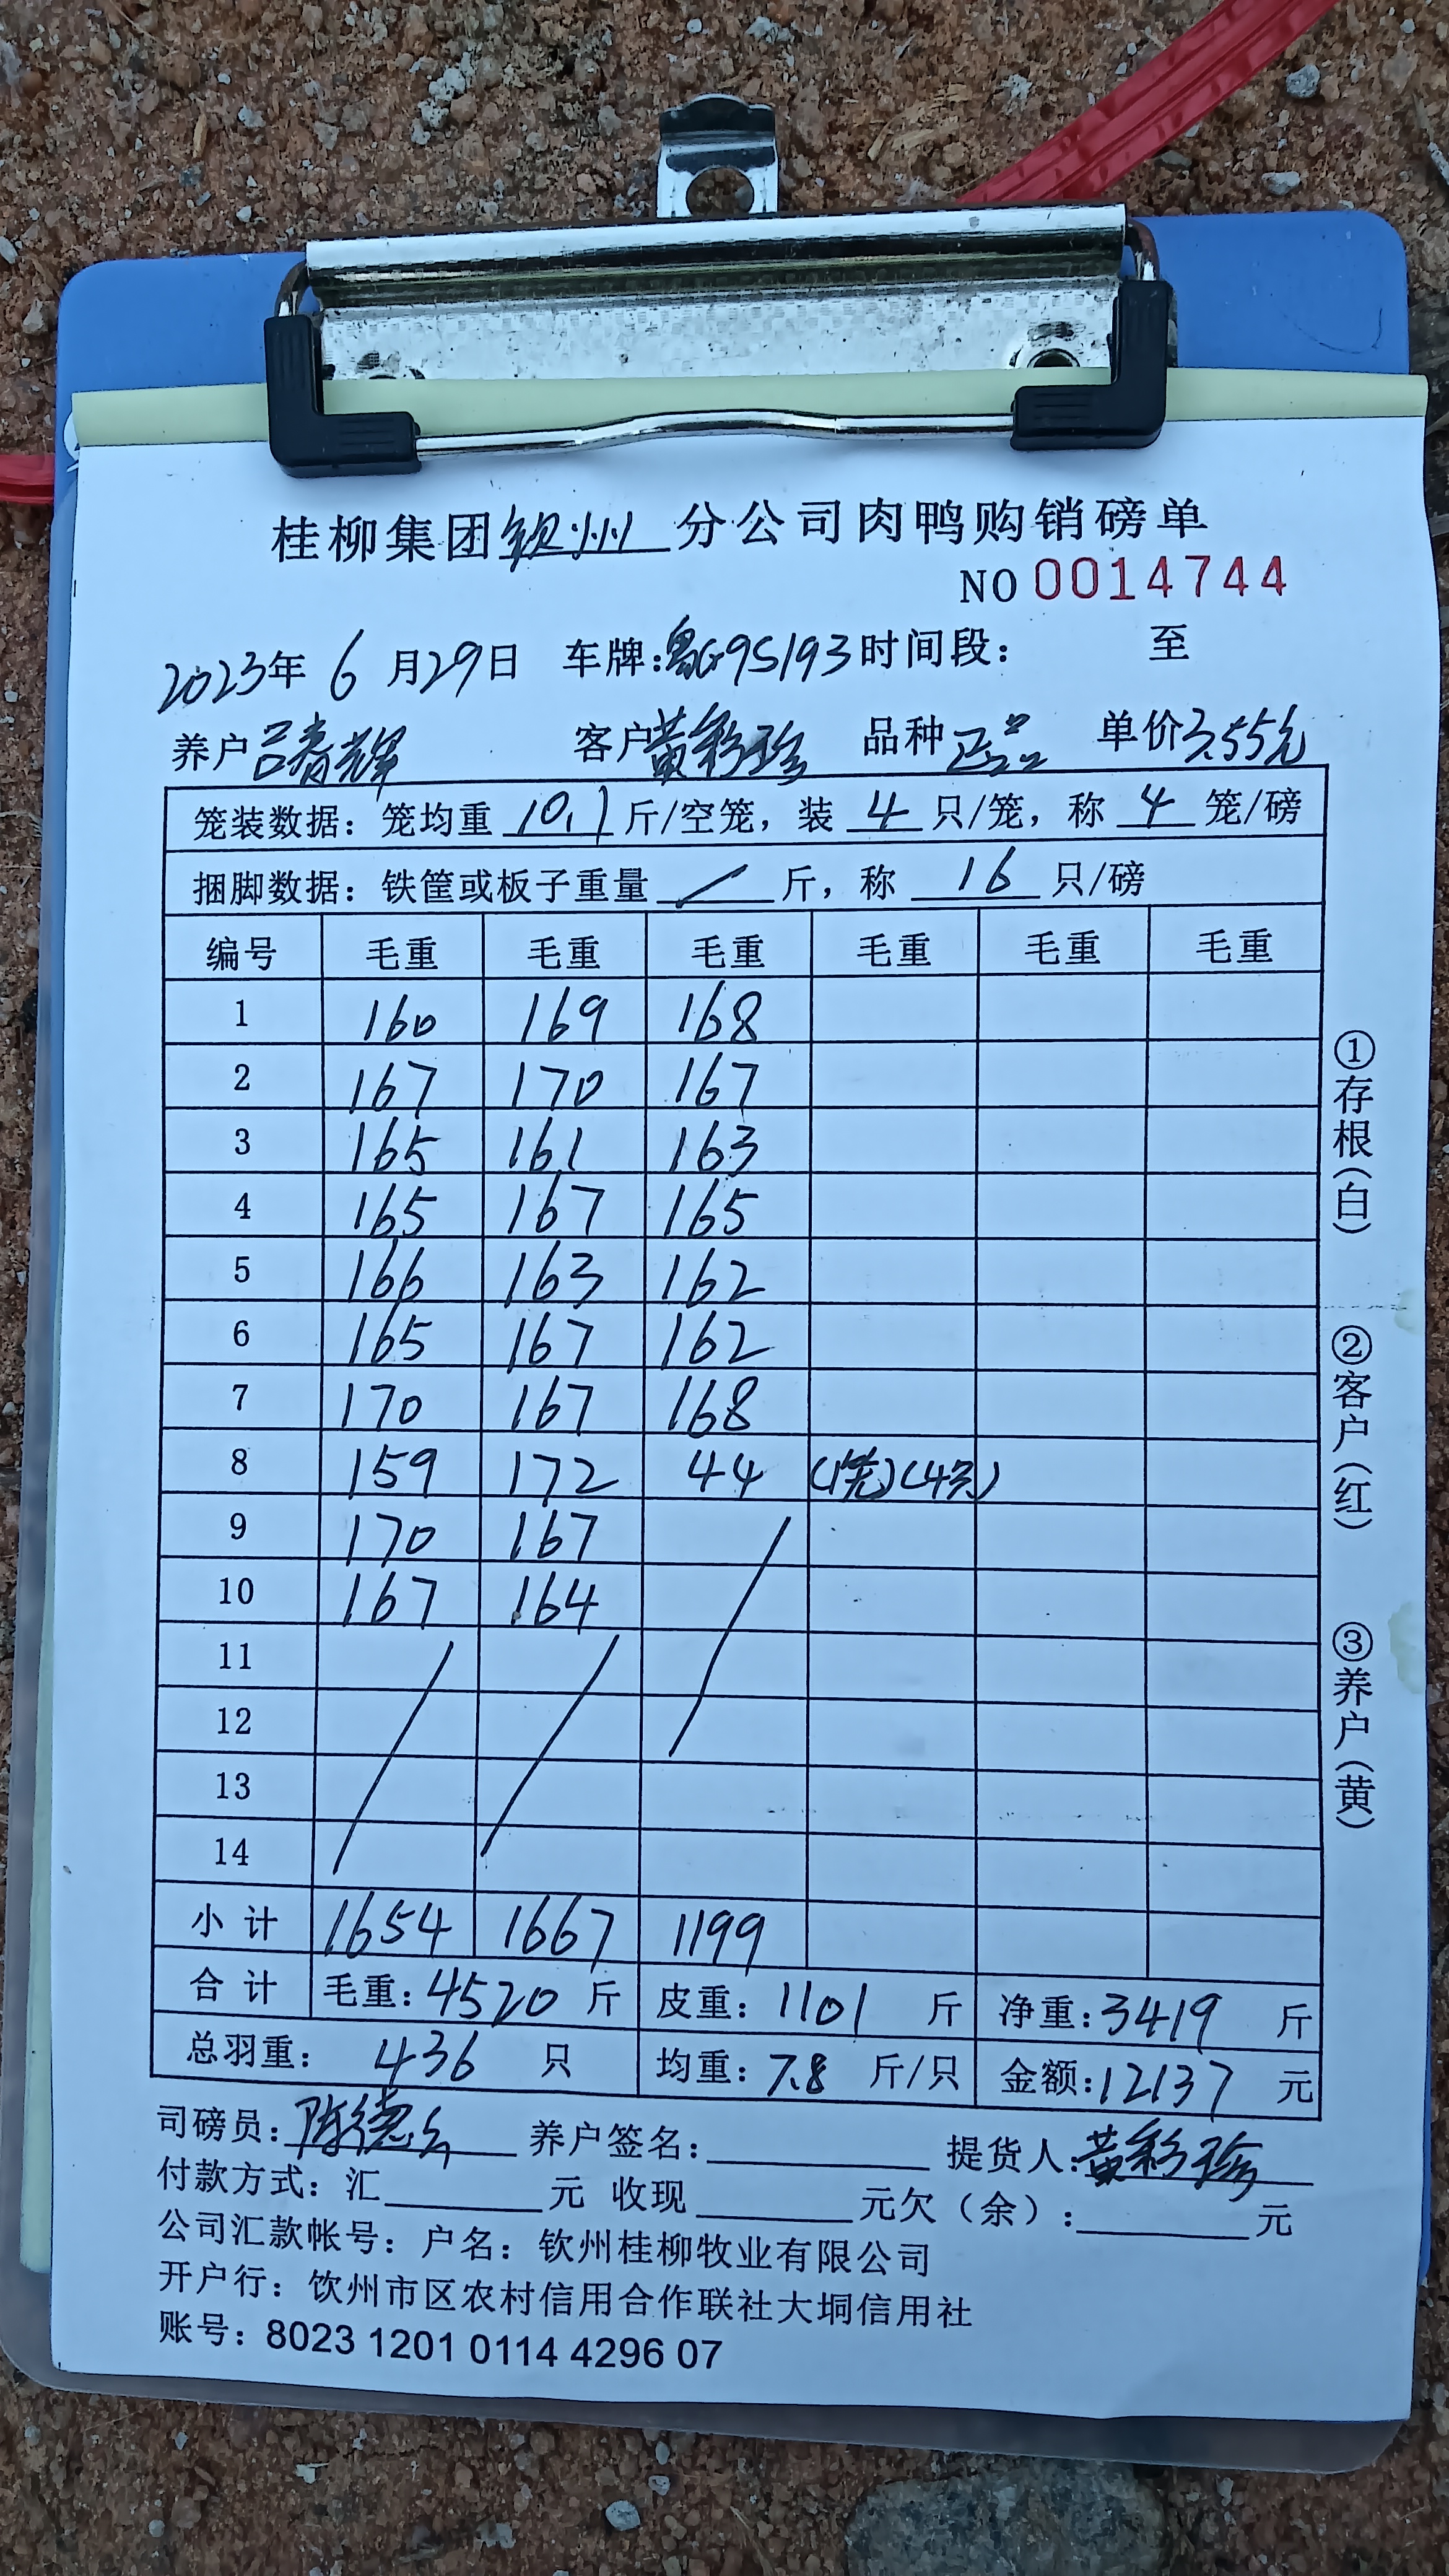 桂柳集团钦州分公司肉鸭购销磅单
NO 0014744
2023年 6月29日 车牌:粤G95193 时间段: 至
养户 吕春辉 客户 黄彩珍 品种 正品 单价 3.55元
笼装数据: 笼均重 10.1 斤/空笼, 装 4 只/笼, 称 4 笼/磅
捆脚数据: 铁筐或板子重量 / 斤, 称 16 只/磅
编号 毛重 毛重 毛重 毛重 毛重 毛重
1 160 169 168
2 167 170 167
3 165 161 163
4 165 167 165
5 166 163 162
6 165 167 162
7 170 167 168
8 159 172 44 (1笼)(4只)
9 170 167
10 167 164
11
12
13
14
小计 1654 1667 1199
合计 毛重: 4520 斤 皮重: 1101 斤 净重: 3419 斤
总羽重: 436 只 均重: 7.8 斤/只 金额: 12137 元
司磅员: 陈德 养户签名: 提货人: 黄彩珍
付款方式: 汇 元 收现 元欠(余): 元
公司汇款帐号: 户名: 钦州桂柳牧业有限公司
开户行: 钦州市区农村信用合作联社大垌信用社
账号: 8023 1201 0114 4296 07
①存根(白)
②客户(红)
③养户(黄)